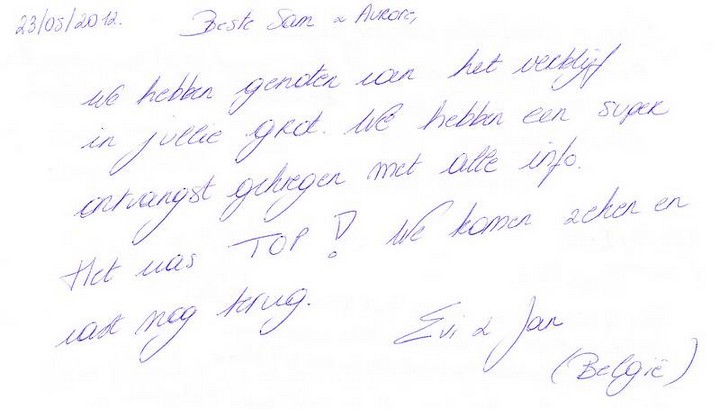 23/05/2012. Beste Sam & Aurore,
We hebben genoten van het verblijf
in jullie grot. We hebben een super
ontvangst gekregen met alle info.
Het was TOP! We komen zeker en
vast nog terug.
Evi & Jan
(België)